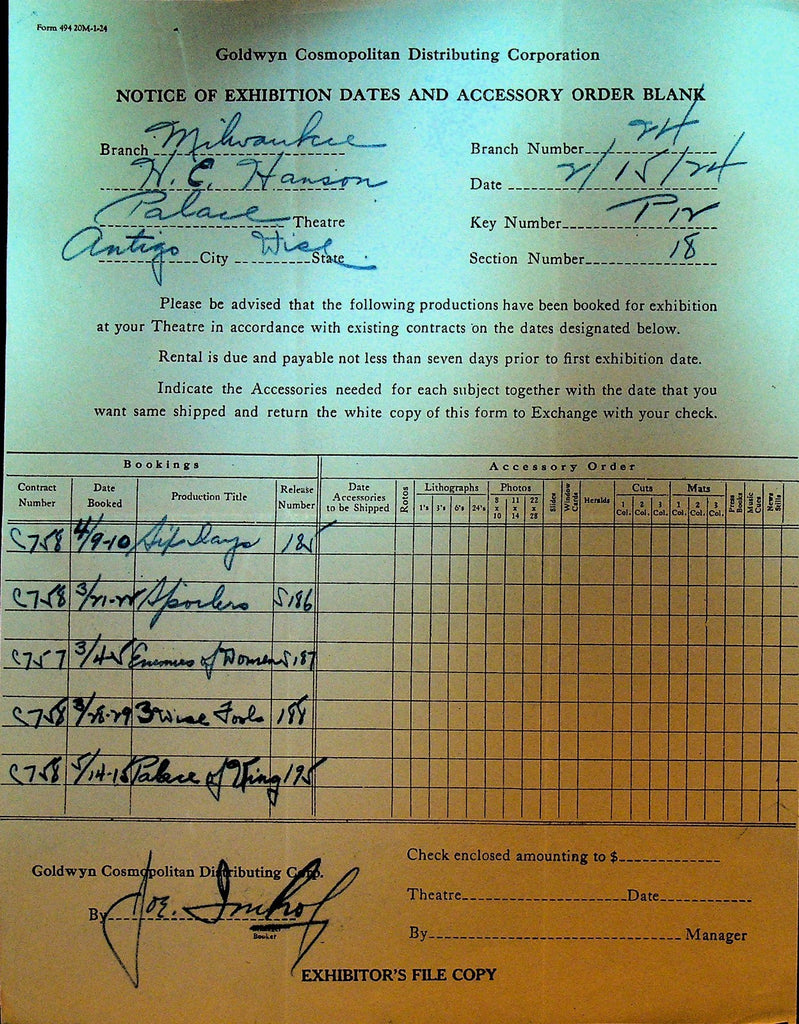 Form 494 20M-1-24
Goldwyn Cosmopolitan Distributing Corporation
NOTICE OF EXHIBITION DATES AND ACCESSORY ORDER BLANK
Branch Milwaukee Branch Number 24
W. E. Hanson Date 2/15/24
Palace Theatre Key Number P12
Antigo City Wisc State Section Number 18
Please be advised that the following productions have been booked for exhibition
at your Theatre in accordance with existing contracts on the dates designated below.
Rental is due and payable not less than seven days prior to first exhibition date.
Indicate the Accessories needed for each subject together with the date that you
want same shipped and return the white copy of this form to Exchange with your check.
Bookings Accessory Order
Contract Number Date Booked Production Title Release Number Date Accessories to be Shipped Rotos Lithographs 1's 3's 6's 24's Photos 8 x 10 11 x 14 22 x 28 Slides Window Cards Heralds Cuts 1 Col. 2 Col. 3 Col. Mats 1 Col. 2 Col. 3 Col. Press Books Music Cues News Stills
C758 4/9-10 Six Days 185
C758 3/21-22 Spoilers S186
C757 3/4-5 Enemies of Women S187
C758 3/28-29 3 Wise Fools 188
C758 5/14-15 Palace of King 195
Goldwyn Cosmopolitan Distributing Corp. Check enclosed amounting to $
Theatre Date
By Joe. Imhof
Booker
By Manager
EXHIBITOR'S FILE COPY